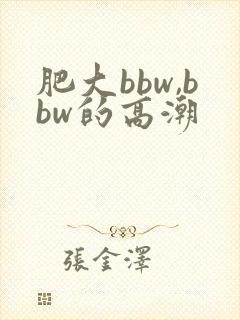 肥大bbw,b
bw的高潮
張金澤